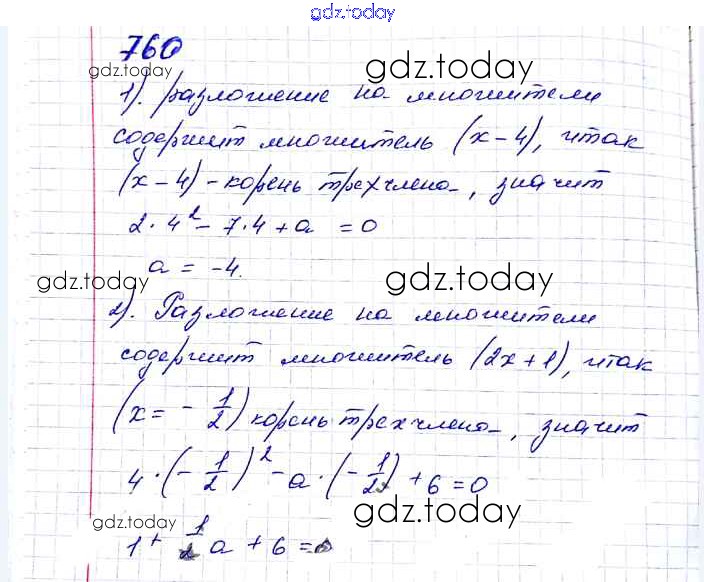 gdz.today
760
gdz.today
gdz.today
1). разложение на множители
содержит множитель (x-4), итак
(x-4) - корень трехчлена, значит
2·4² - 7·4 + a = 0
gdz.today
gdz.today
a = -4.
2). Разложение на множители
содержит множитель (2x+1), итак
(x = -1/2) корень трехчлена, значит
4·(-1/2)² - a·(-1/2) + 6 = 0
gdz.today
gdz.today
1 + 1/2 a + 6 = 0